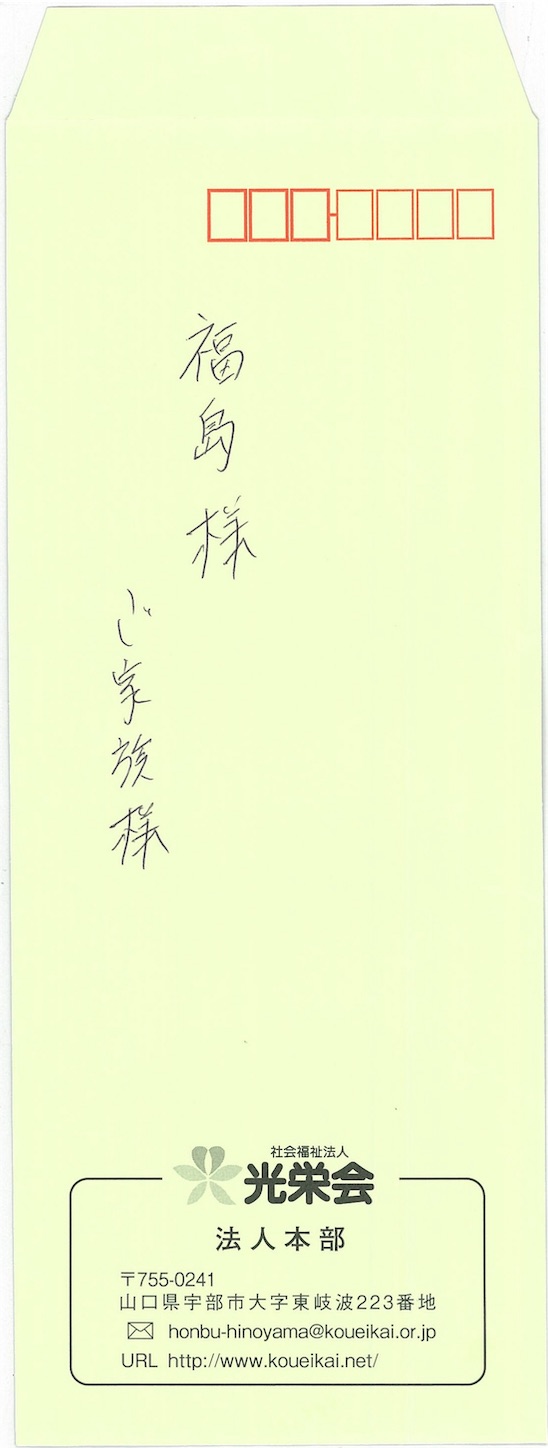 福島様
ご家族様
社会福祉法人
光栄会
法人本部
〒755-0241
山口県宇部市大字東岐波223番地
honbu-hinoyama@koueikai.or.jp
URL http://www.koueikai.net/